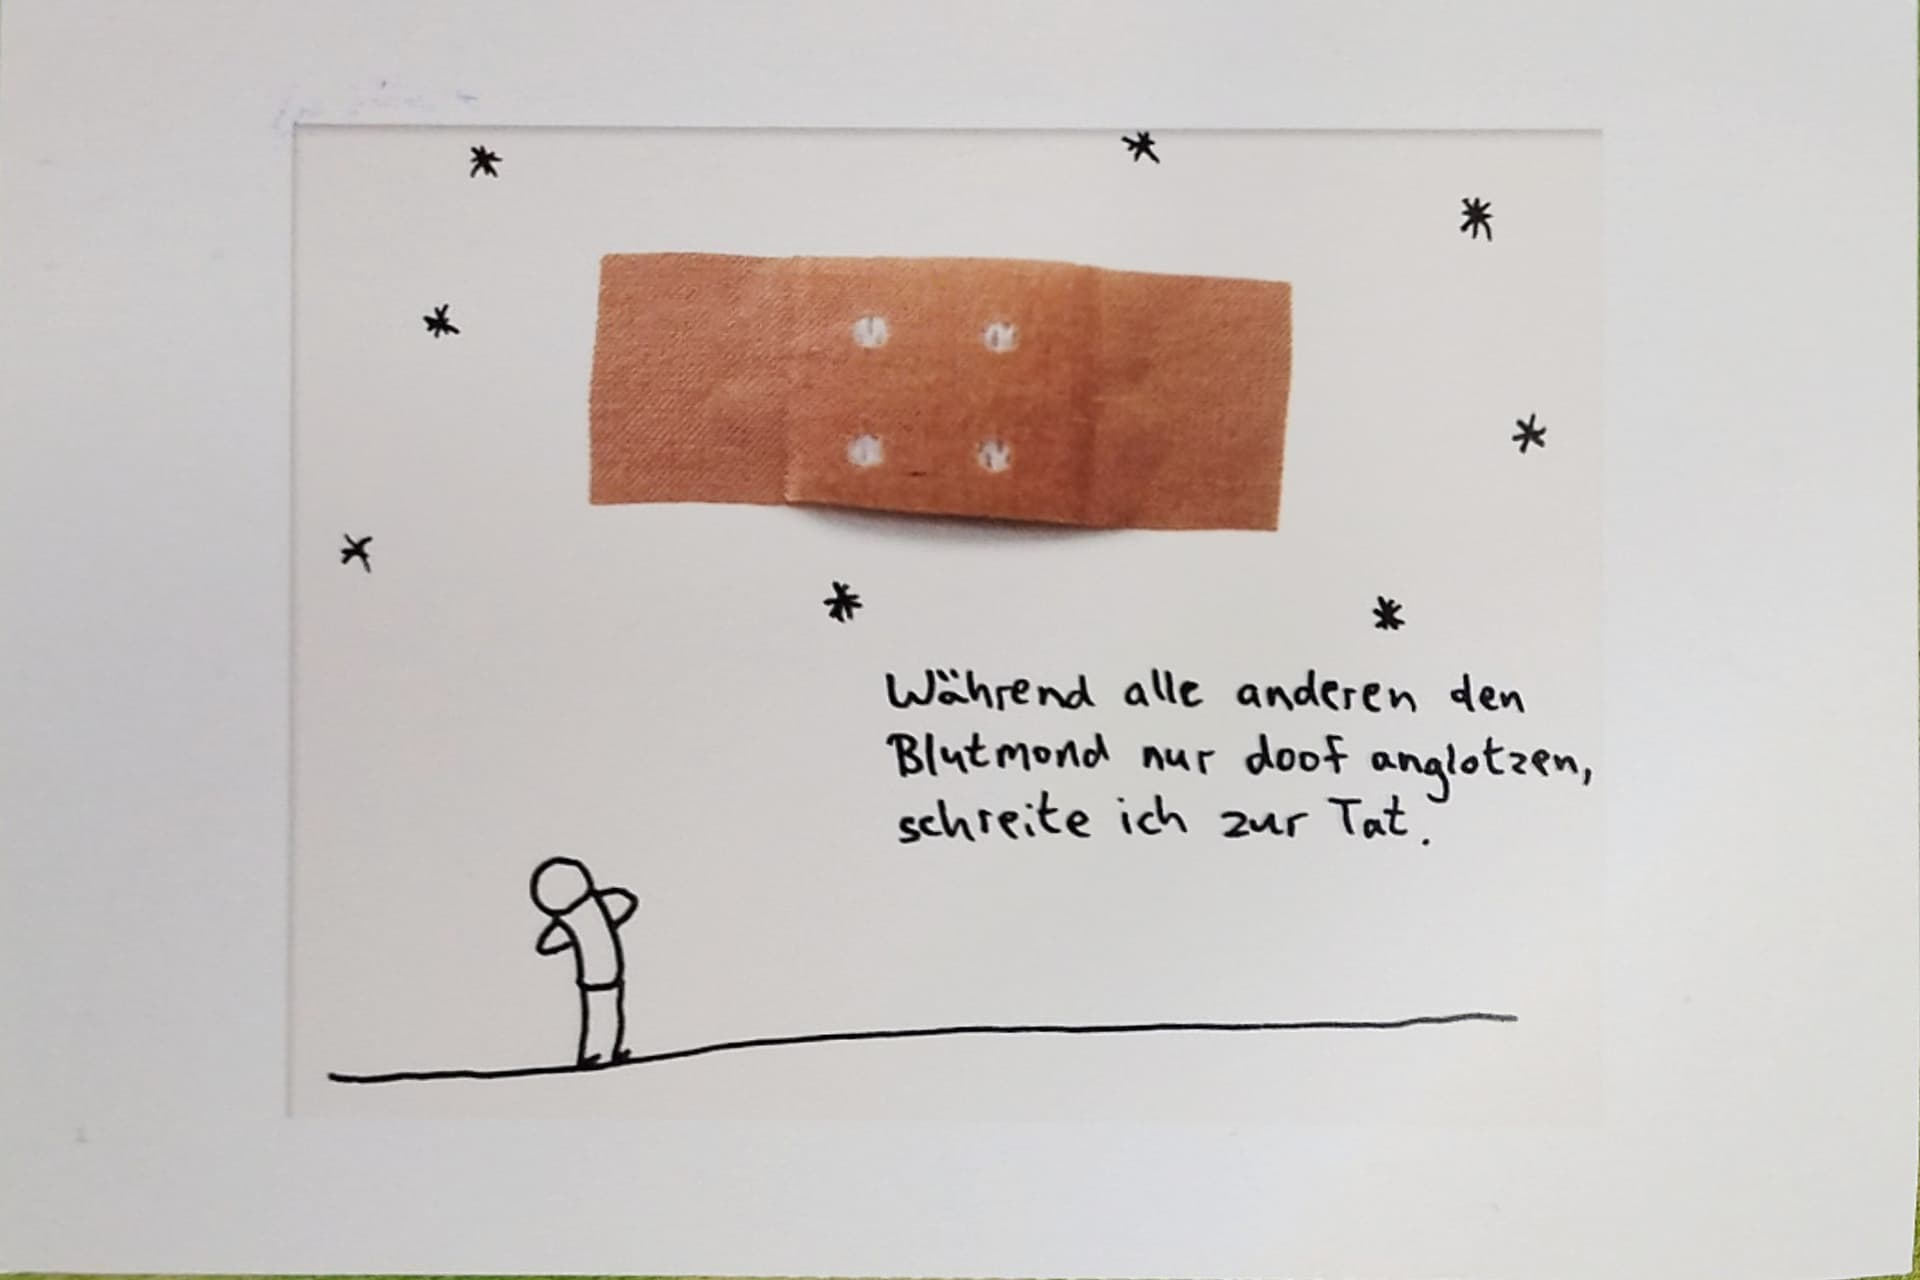 Während alle anderen den
Blutmond nur doof anglotzen,
schreite ich zur Tat.